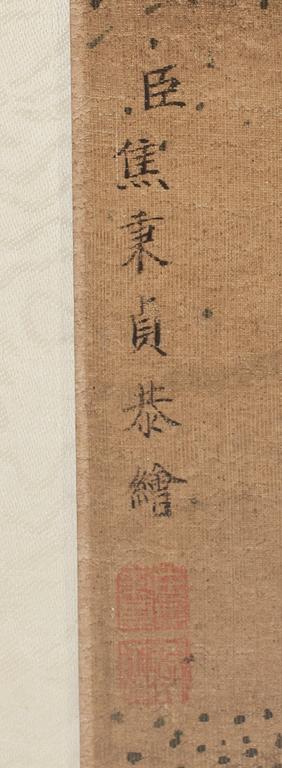 臣焦秉貞恭繪